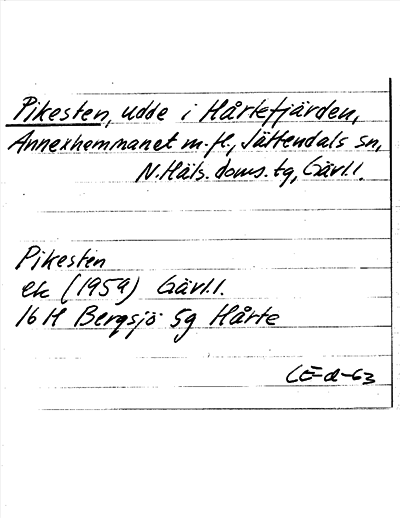 Pikesten, udde i Hårtefjärden,
Annexhemmanet m.fl., Jättendals sn,
N.Häls.doms.tg, Gävl.l.
Pikesten
ek (1959) Gävl.l.
16 H Bergsjö 5g Hårte